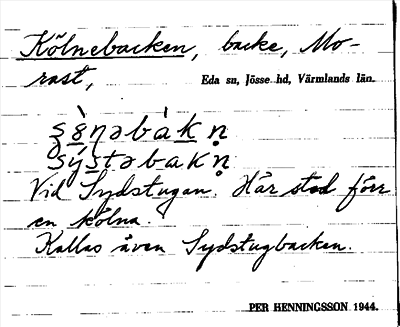 Kölnebacken, backe, Mo-
rast, Eda sn, Jösse hd, Värmlands län.
Vid Sydstugan. Här stod förr
en kölna.
Kallas även Sydstugbacken.
PER HENNINGSSON 1944.